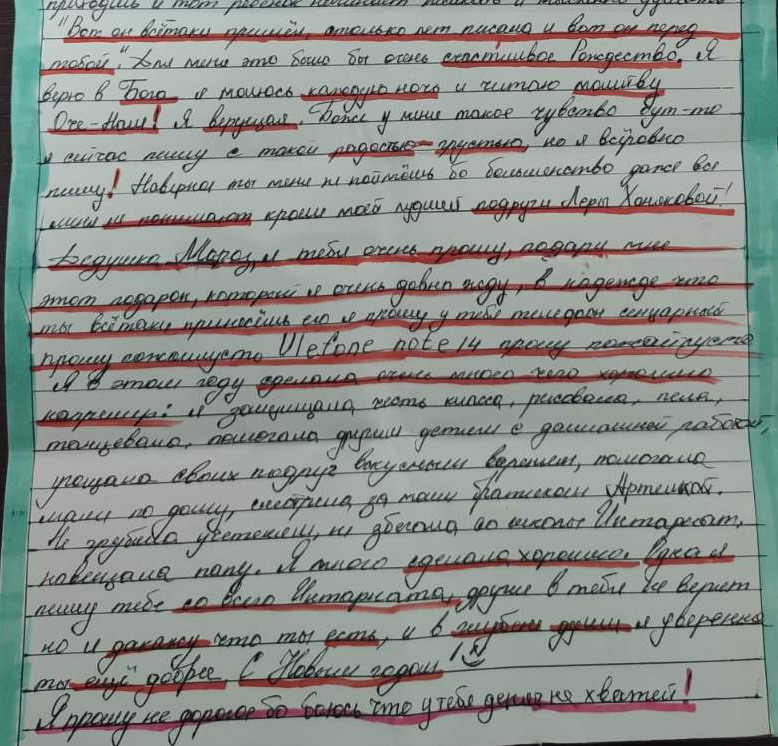 приходишь и тот ребёнок начинает писать и
"Вот он всётаки пришёл, столько лет писала и вот он перед
тобой". Для меня это было бы очень счастливое Рождество. Я
верю в Бога я молюсь каждую ночь и читаю молитву
Оче-Наш! Я верущая. Боже у меня такое чувство бут-то
я сейчас пишу с такой радостью-грустью, но я всёровно
пишу! Наверное ты меня не поймёшь бо большенство даже все
меня не понимают кроме моей лудшей подруги Леры Хоняковой!
Дедушка Мороз, я тебя очень прошу, подари мне
этот подарок, который я очень давно жду, в надежде что
ты всётаки принесёшь его я прошу у тебя теледон сенцарный
прошу пожалусто Ulefone note 14 прошу пожайлуста
Я в этом году сделала очень много чего хорошего
например: я защищала честь класса, рисовала, пела,
танцевала, помогала другим детям с домашней работой,
угощала своих подруг вкусным вареньем, помогала
маме по дому, смотрела за моим братиком Артёмкой.
Не грубила учетелям, не збегала со школы Интарнат,
навещала папу. Я много сделала хорошего. Одна я
пишу тебе со всего Интарната, другие в тебя не верят
но я дакажу что ты есть, и в глубене души я уверенна
ты ещё добрее С Новым годом !
Я прошу не дорогое бо боюсь что у тебя денег не хватей!